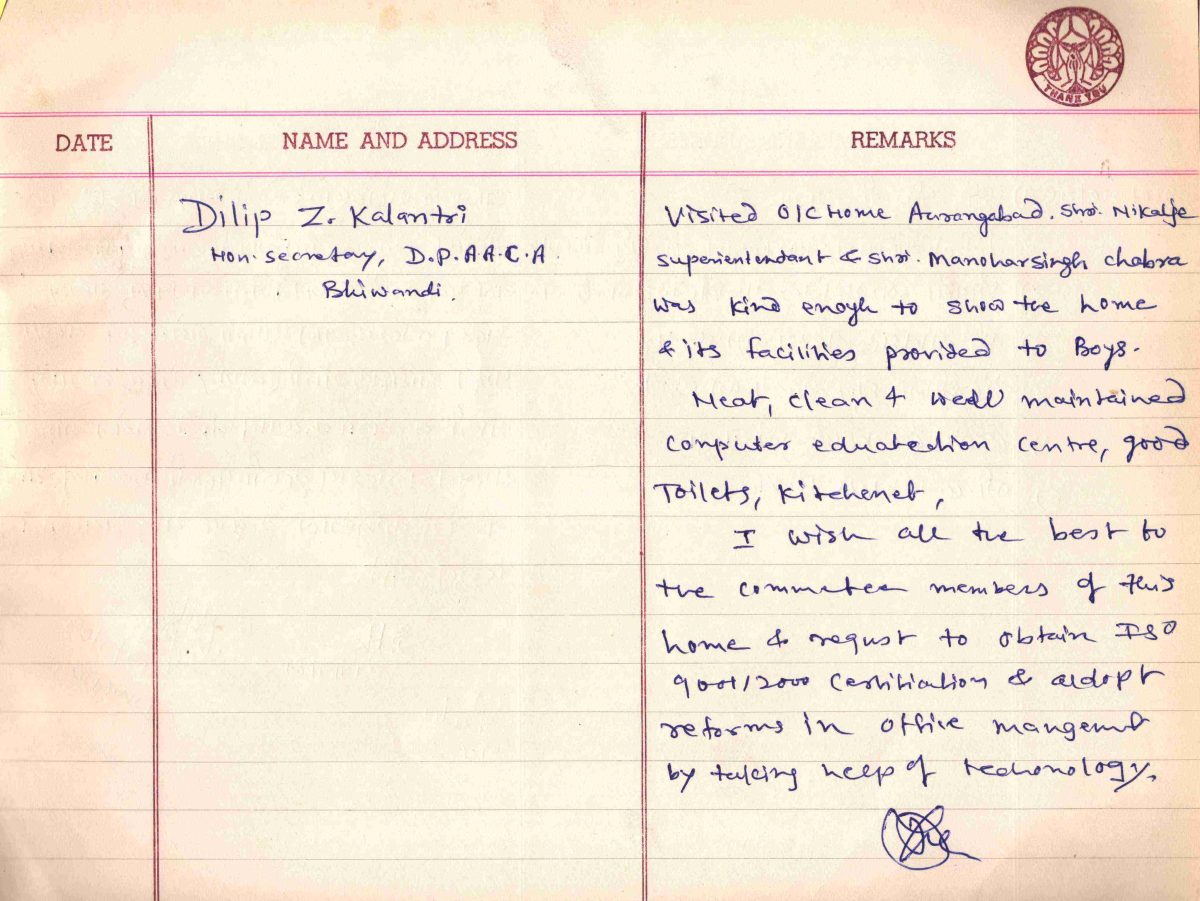 THANK YOU
DATE NAME AND ADDRESS REMARKS
Dilip Z. Kalantri
Hon. secretay, D.P.A.A.C.A.
Bhiwandi.
Visited O/C Home Aurangabad. Shri. Nikalje
superientendant & Shri. Manoharsingh chabra
was kind enogh to show the home
& its facilities provided to Boys.
Neat, clean & well maintained
computer eduatedion centre, good
Toilets, Kitchenet,
I wish all the best to
the commetee members of this
home & requst to obtain ISO
9001/2000 Certifiation & addopt
reforms in office mangemt
by taking help of techonology.